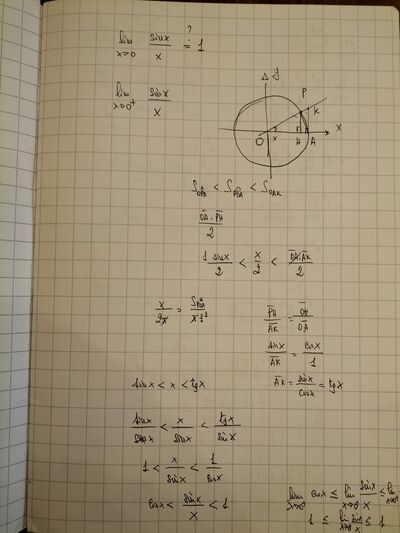 lim x→0 sinx/x ?= 1
lim x→0⁺ sinx/x
y
P
K
O x H A x
S_OPA < S_POA < S_OAK
OA·PH/2
1 sinx/2 < x/2 < OA·AK/2
x/2π = S_POA/π1²
PH/AK = OH/OA
sinx/AK = cosx/1
AK = sinx/cosx = tgx
sinx < x < tgx
sinx/sinx < x/sinx < tgx/sinx
1 < x/sinx < 1/cosx
cosx < sinx/x < 1
lim x→0⁺ cosx ≤ lim x→0⁺ sinx/x ≤ lim
1 ≤ lim x→0⁺ sinx/x ≤ 1